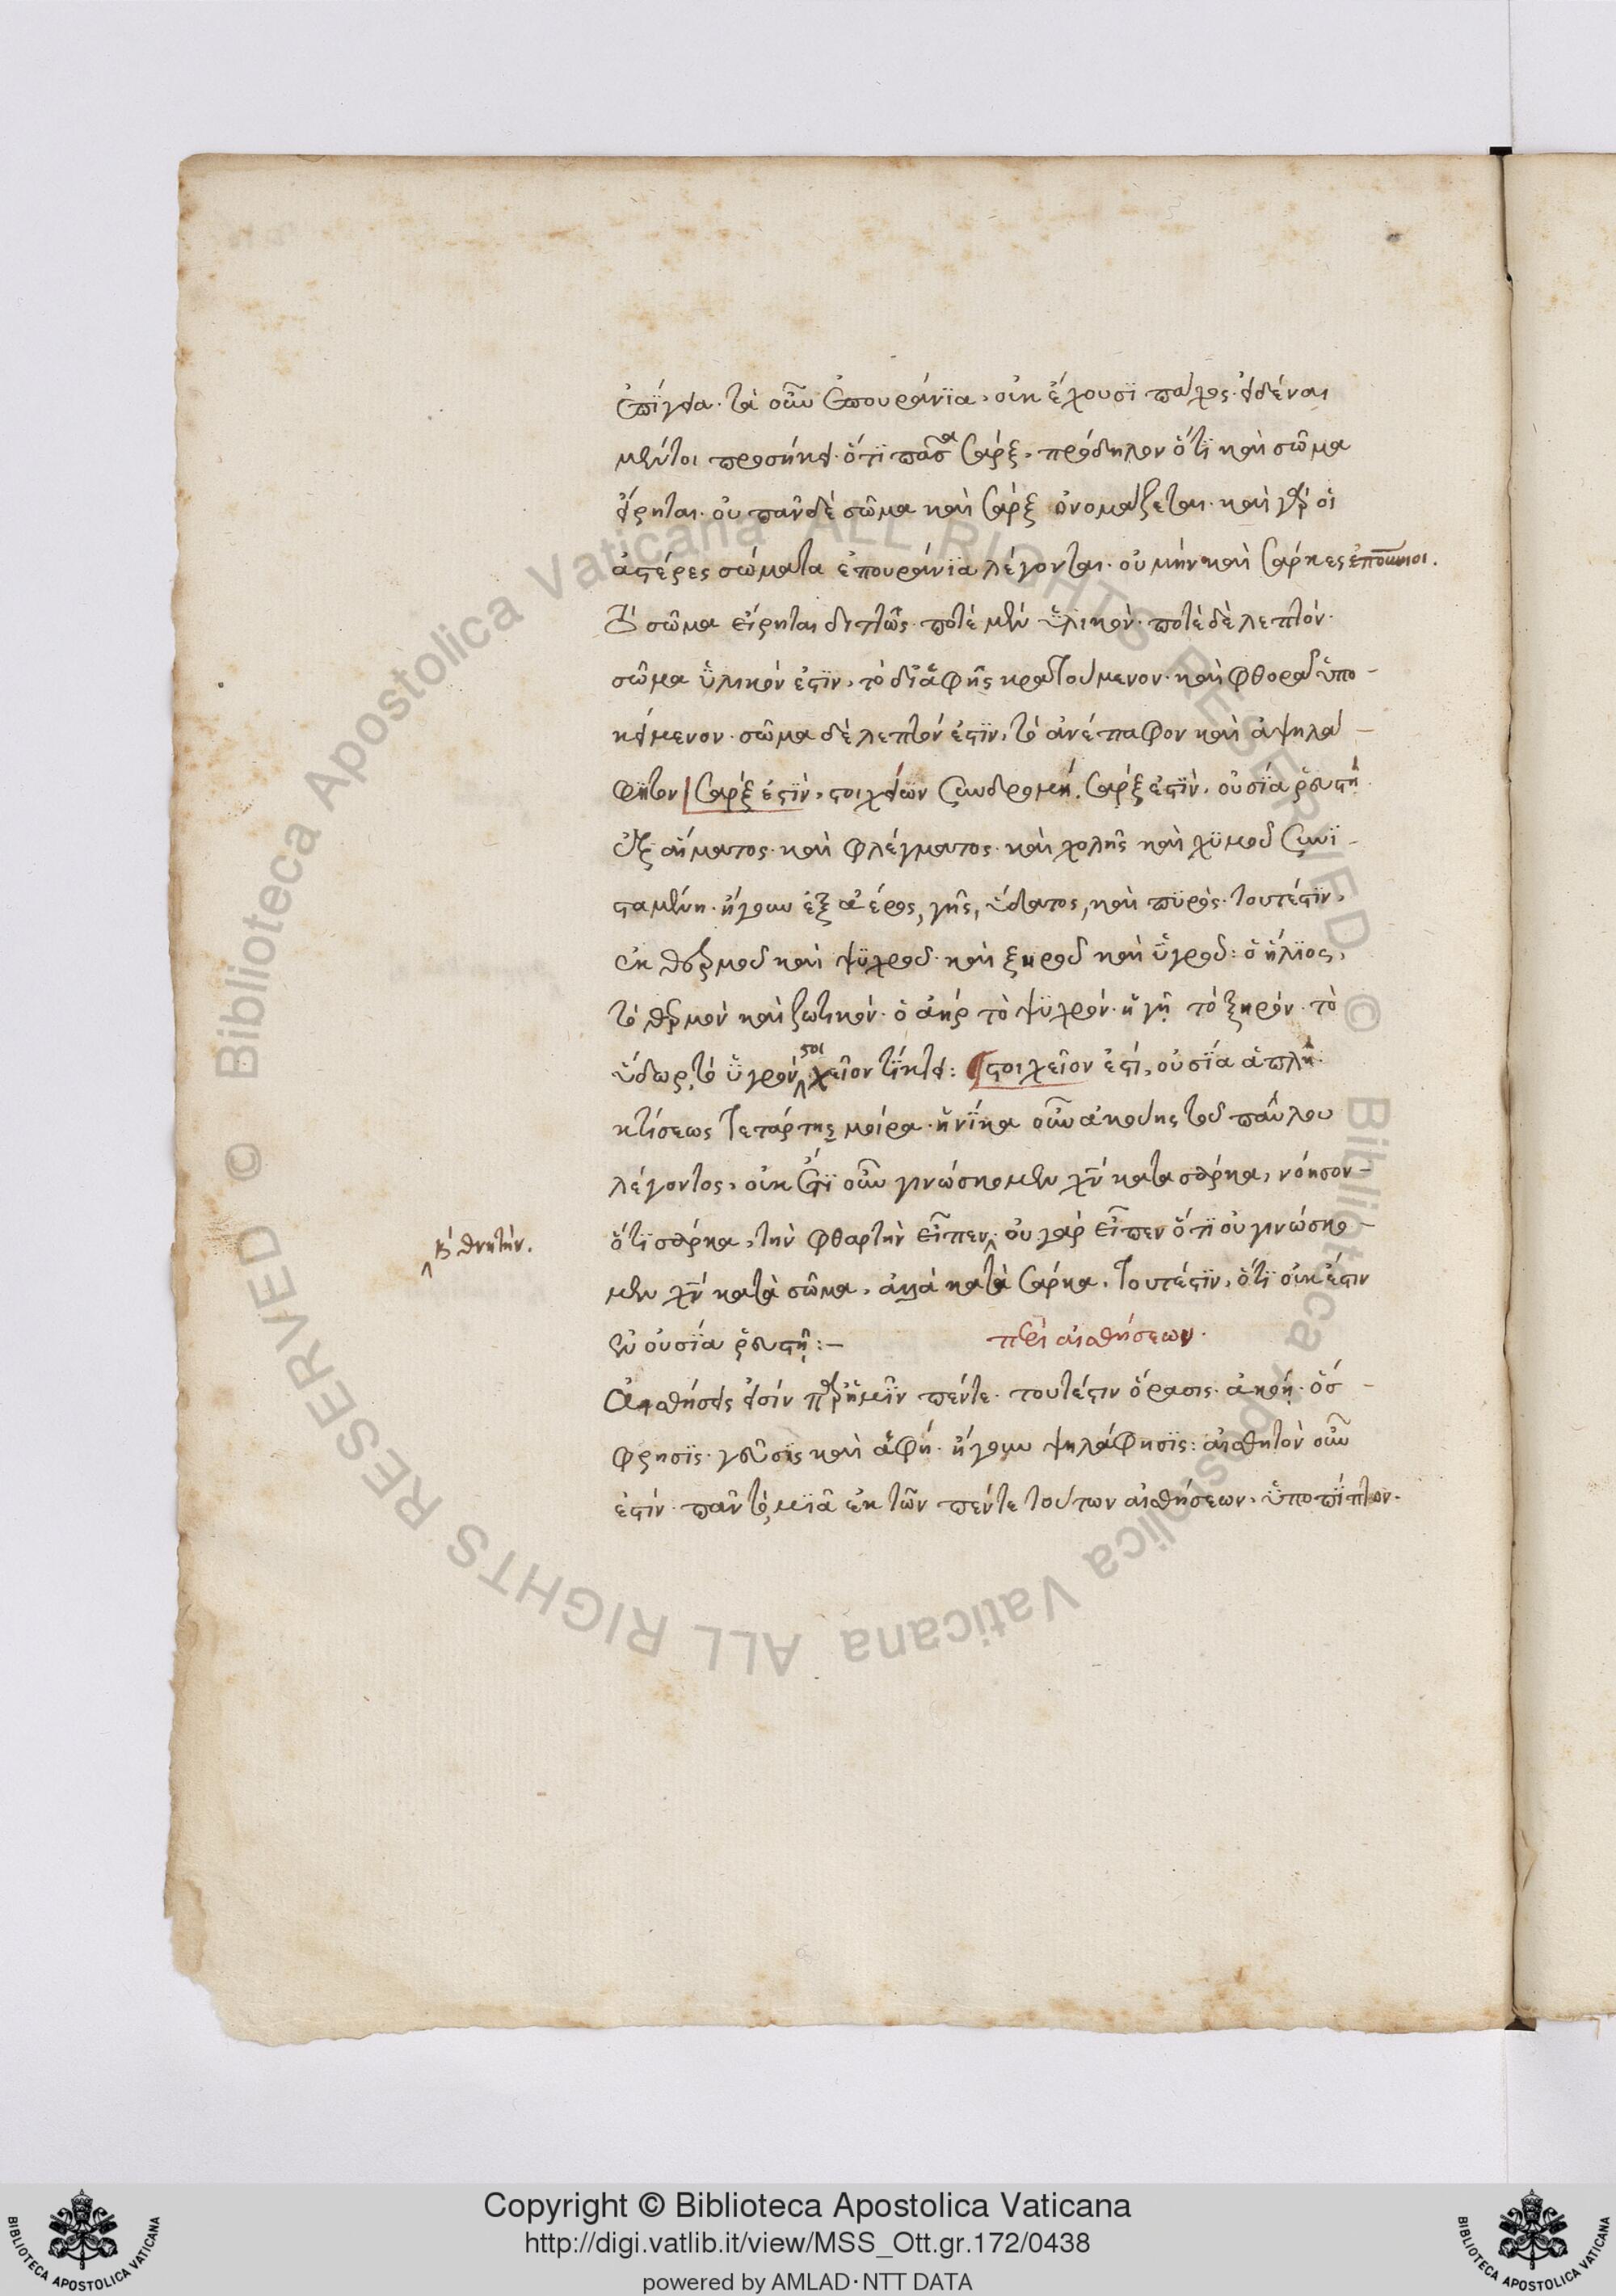 ἐπίγεια. τὰ οὖν ἐπουράνϊα, οὐκ ἔχουσϊ πάχος. εἰδέναι
μέντοι προσήκει. ὅτϊ πᾶσα σάρξ, πρόδηλον ὅτϊ καὶ σῶμα
εἴρηται. οὐ πᾶν δὲ σῶμα καὶ σάρξ ὀνομάζεται. καὶ γὰρ οἱ
ἀστέρες σώματα ἐπουράνϊα λέγονται. οὐ μὴν καὶ σάρκες ἐπουράνιοι.
τὸ σῶμα εἴρηται διττῶς. ποτὲ μὲν ὑλικόν. ποτὲ δὲ λεπτόν.
σῶμα ὑλικόν ἐστϊν, τὸ δι ἁφῆς κρατούμενον. καὶ φθορᾶ ὑπο-
κείμενον. σῶμα δὲ λεπτόν ἐστϊν, τὸ ἀνέπαφον καὶ ἀψηλά-
φητον σάρξ ἐστϊν, στοιχείων συνδρομή. σάρξ ἐστϊν, οὐσία ῥευστὴ
ἐξ αἵματος. καὶ φλέγματος. καὶ χολῆς καὶ χϋμοῦ συνϊ-
σταμένη. ἤγουν ἐξ ἀέρος, γῆς, ὕδατος, καὶ πϋρὸς. τουτέστϊν,
ἐκ θερμοῦ καὶ ψϋχροῦ. καὶ ξηροῦ καὶ ὑγροῦ: ὁ ἥλϊος,
τὸ θερμὸν καὶ ζωτικόν. ὁ ἀὴρ τὸ ψϋχρόν. ἡ γῆ τὸ ξηρόν. τὸ
ὕδωρ, τὸ ὑγρόν, στοιχεῖον τίκτει: στοιχεῖον ἐστί, οὐσία ἁπλῆ.
κτίσεως τετάρτης μοίρα. ἡνίκα οὖν ἀκούης τοῦ παύλου
λέγοντος, οὐκ ἔτϊ οὖν γινώσκομεν χν κατα σάρκα, νόησον-
ὅτϊ σάρκα, τὴν φθαρτὴν εἶπεν. οὐ γάρ εἶπεν ὅτϊ οὐ γινώσκο-
κ θνητήν.
μεν χν κατὰ σῶμα, ἀλλὰ κατὰ σάρκα. τουτέστϊν, ὅτϊ οὐκ ἐστιν
ἐν οὐσία ῥευστῆ:-
περὶ αἰσθήσεων.
Αἰσθήσεις εἰσίν παρ ἡμῖν πέντε. τουτέστιν ὅρασις. ἀκοή. ὄσ-
φρησϊς. γεῦσϊς καὶ ἁφή. ἤγουν ψηλάφησϊς: αἰσθητὸν οὖν
ἐστίν. πᾶν τὸ, μϊᾶ ἐκ τῶν πέντε τούτων αἰσθήσεων, ὑποπῖπτον.
Copyright © Biblioteca Apostolica Vaticana
http://digi.vatlib.it/view/MSS_Ott.gr.172/0438
powered by AMLAD·NTT DATA
BIBLIOTECA APOSTOLICA VATICANA
BIBLIOTECA APOSTOLICA VATICANA
© Biblioteca Apostolica Vaticana ALL RIGHTS RESERVED
© Biblioteca Apostolica Vaticana ALL RIGHTS RESERVED